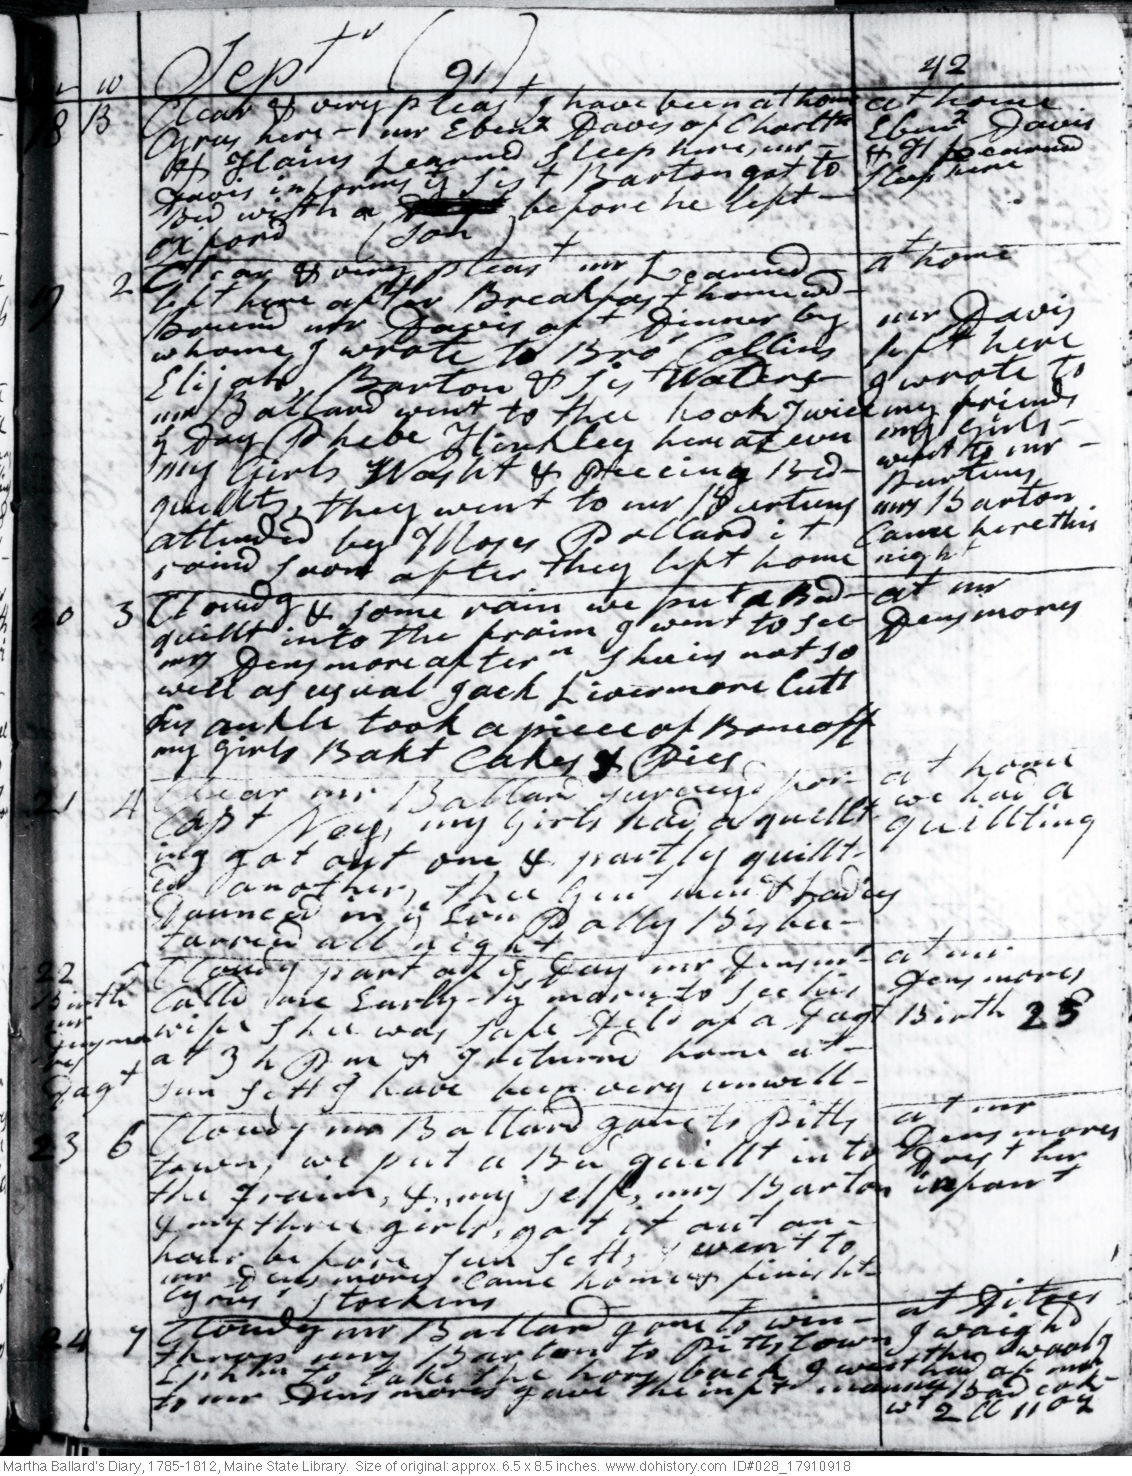 10 Sept^r (91) 42
18 B Clear & very pleas^t I have been at home
Cyrus here – mr Eben^z Davis of Charl^tn
& Hains Learned Sleep here, mr –
Davis informs y^t Sis^t Barton got to
Bed with a before he left –
oxford (Son)
at home
Eben^z Davis
& H Learned
sleep here
9 2 Clear & very pleas^t mr Learned
left here after Breakfast homewd
Bound mr Davis af^t Dinner by
whome I wrote to Bro^r Collins
Elijah, Barton & Sis^t Waters
mr Ballard went to thee hook twice
y^e Day Phebe Hinkley here at even
my Girls Washt & Peecing Bed–
quillts, they went to mr Burtuns
attinded by Moses Pollard it
raind soon after they left home
at home
mr Davis
left here
I wrote to
my friends
my girls –
went to mr –
Burtuns
mrs Barton
Came here this
night
20 3 Cloudy & some rain we put a Bed–
quillt into the fraim I went to see
mrs Densmore after^n Shee is not so
well as usual Jack Livermore Cutt
his ankle took a piece of Bone off
my girls Bakt Cakes & Pies
at mr
Densmores
21 4 Clear mr Ballard survey^d for
Capt Ney, my Girls had a quillt
ing got out one & partly quillt–
ed another, thee Gent^n men & Ladies
Daunced in y^e Evn Polly Bisbee–
tarried all night
at home
we had a
quillting
22 5 Cloudy part of y^e Day mr Densm^r
Calld me Early y^s morn to see his
wife Shee was safe Deld of a Dag^t
at 3 h Pm & I returnd home at –
sun sett I have been very unwell –
Birth
mr
Densmo
res
Dag^t
at mr
Densmores
Birth 25
23 6 Cloudy mr Ballard gone to Pitts
town, we put a Bed quillt into
the Fraim, & my self, mrs Barton
& my three girls, got it out an –
hour before sun sett, I went to
mr Densmores Came home & finisht
Cyrus' Stockins
at mr
Densmores
Drest her
infant
24 7 Cloudy mr Ballard gone to win–
throp mrs Barton to Pittstown
Ephm to take the hors back I went
to mr Densmores gave the inf^t
at Ditoes
I waighd
thee wool I
had of mr
Bad cok
w^t 2 ll 11 oz
Martha Ballard's Diary, 1785-1812, Maine State Library. Size of original: approx. 6.5 x 8.5 inches. www.dohistory.com ID#028_17910918